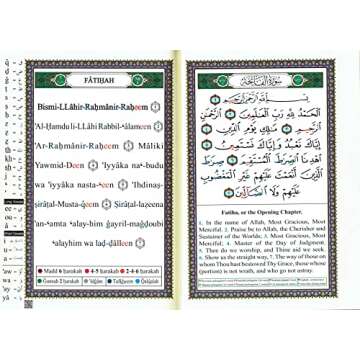 FÂTIḤAH
Bismi-LLâhir-Raḥmânir-Raḥeem
'Al-Ḥamdu li-LLâhi Rabbil-ʻâlameen
'Ar-Raḥmânir-Raḥeem Mâliki
Yawmid-Deen 'Iyyâka naʻbudu
wa 'iyyâka nastaʻeen 'Ihdinaṣ-
Ṣirâṭal-Mustaqeem Ṣirâṭal-lazeena
'anʻamta ʻalayhim ġayril-maġḍoubi
ʻalayhim wa laḍ-ḍâlleen
Madd 6 ḥarakah 4-5 ḥarakah 2-4-6 ḥarakah
Gunnah 2 ḥarakah 'Idġâm Tafḫeem Qalqalah
سورة الفاتحة
بِسْمِ اللَّهِ الرَّحْمَٰنِ الرَّحِيمِ
الْحَمْدُ لِلَّهِ رَبِّ الْعَالَمِينَ الرَّحْمَٰنِ
الرَّحِيمِ مَٰلِكِ يَوْمِ الدِّينِ
إِيَّاكَ نَعْبُدُ وَإِيَّاكَ نَسْتَعِينُ
اهْدِنَا الصِّرَاطَ الْمُسْتَقِيمَ صِرَاطَ
الَّذِينَ أَنْعَمْتَ عَلَيْهِمْ غَيْرِ الْمَغْضُوبِ
عَلَيْهِمْ وَلَا الضَّالِّينَ
Fatiha, or the Opening Chapter.
1. In the name of Allah, Most Gracious, Most
Merciful. 2. Praise be to Allah, the Cherisher and
Sustainer of the Worlds; 3. Most Gracious, Most
Merciful; 4. Master of the Day of Judgment.
5. Thee do we worship, and Thine aid we seek.
6. Show us the straight way, 7. The way of those on
whom Thou hast bestowed Thy Grace, those whose
(portion) is not wrath, and who go not astray.